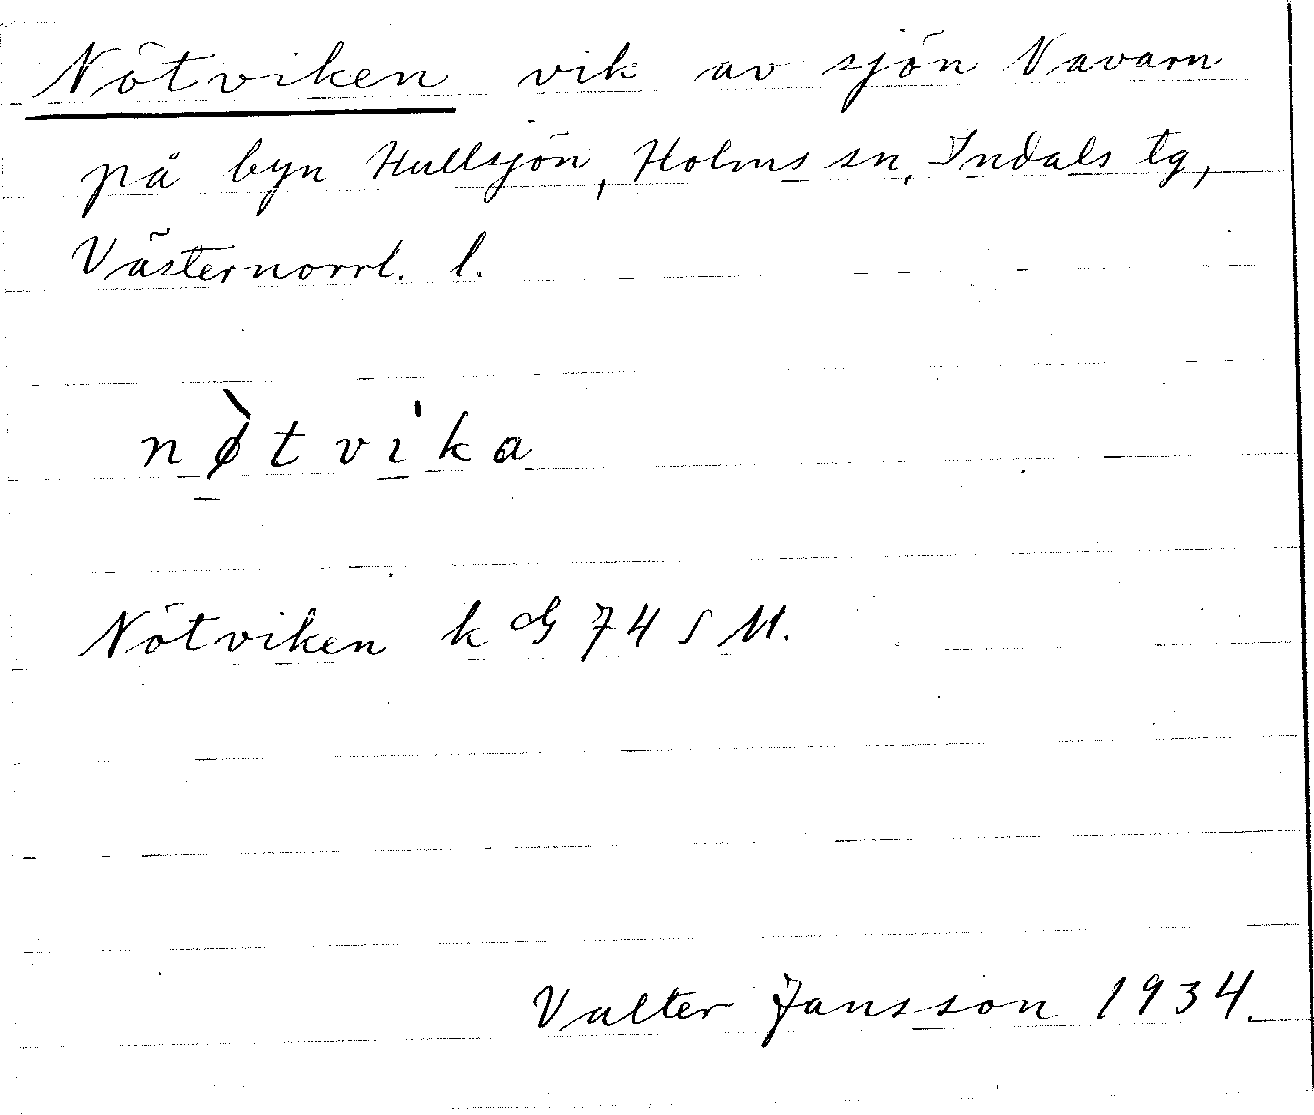 Nötviken vik av sjön Navarn
på byn Hullsjön, Holms sn, Indals tg,
Västernorrl. l.
nø̀tvìka
Nötviken k G 74 S M.
Valter Jansson 1934.